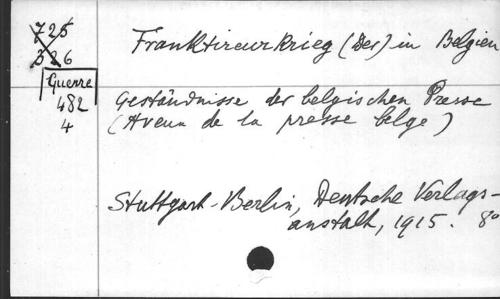 725
326
Guerre
482
4
Franktireurkrieg (Der) in Belgien
Geständnisse der belgischen Presse
(Aveux de la presse belge)
Stuttgart-Berlin, Deutsche Verlags-
anstalt, 1915. 8°